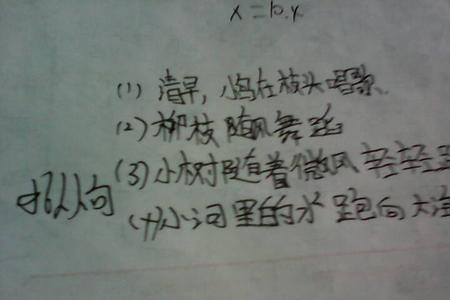 (1) 清早,小鸟在枝头唱歌.
(2) 柳枝随风舞蹈
(3) 小树随着微风轻轻
拟人句
(4) 小河里的水跑向大海